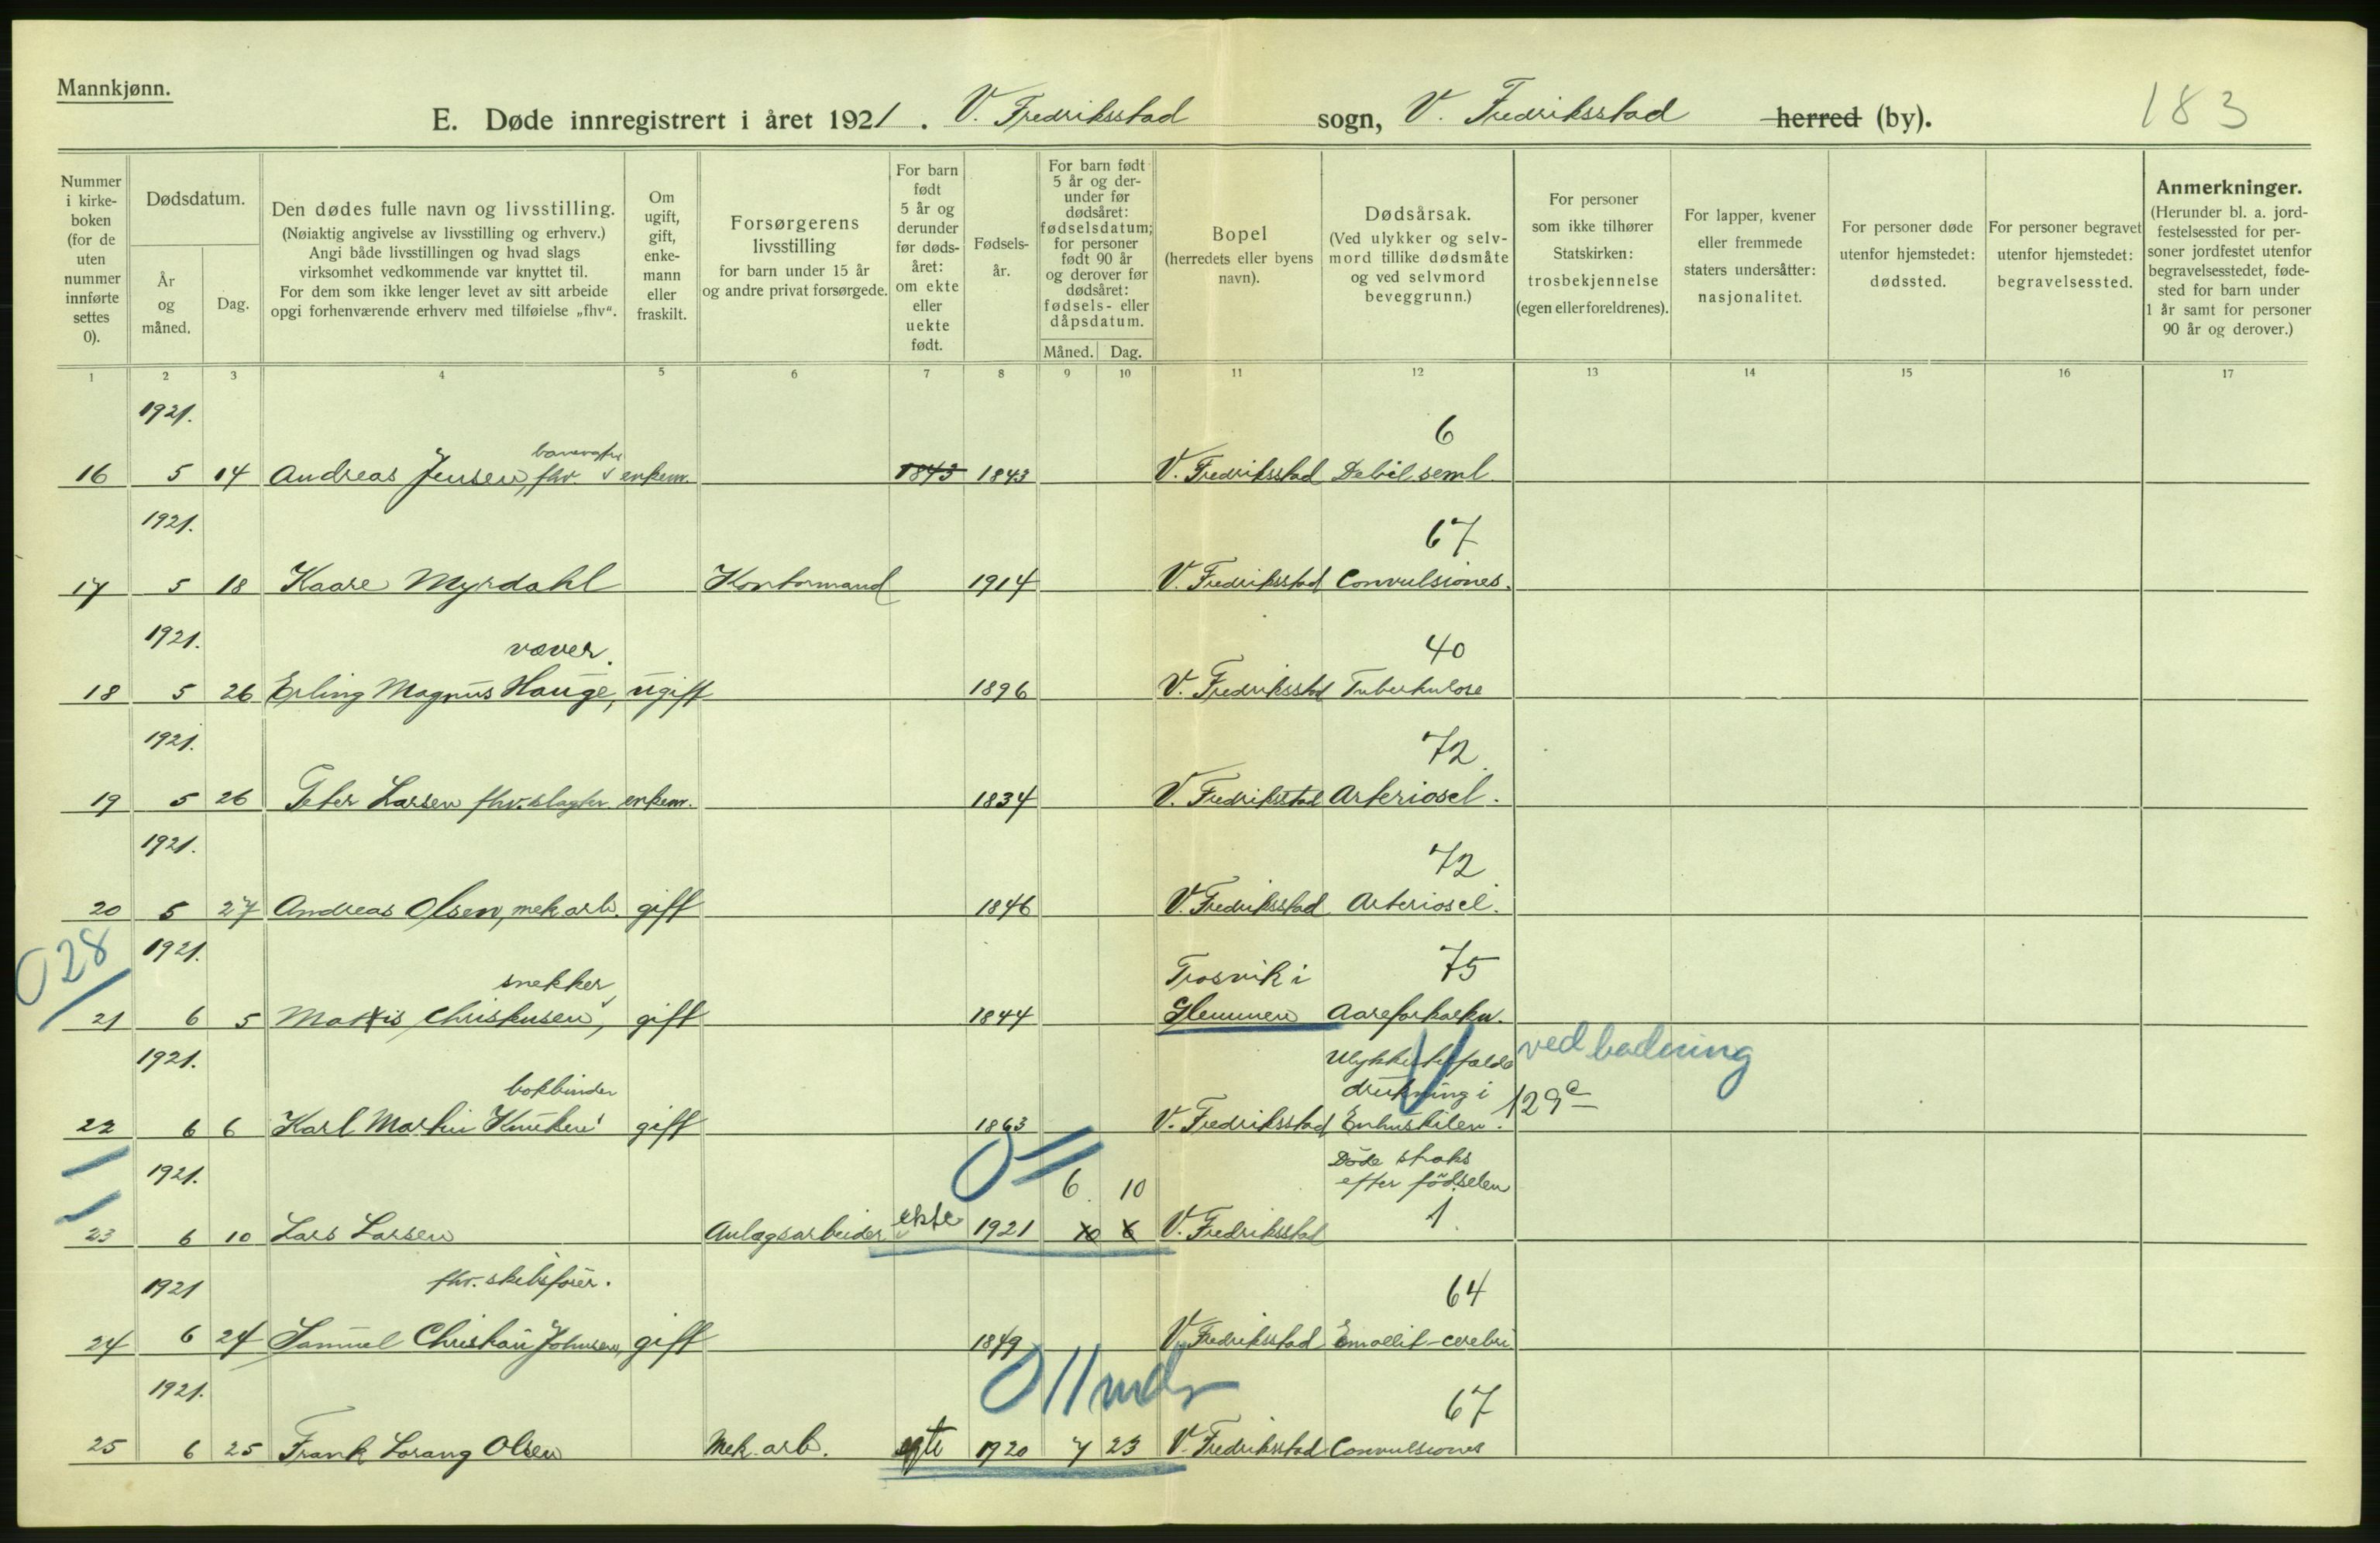 Mannkjønn.
E. Døde innregistrert i året 1921. V. Fredriksstad sogn, V. Fredriksstad herred (by).
183
Nummer i kirke- boken (for de uten nummer innførte settes 0).
Dødsdatum.
År og måned.
Dag.
Den dødes fulle navn og livsstilling.
(Nøiaktig angivelse av livsstilling og erhverv.)
Angi både livsstillingen og hvad slags
virksomhet vedkommende var knyttet til.
For dem som ikke lenger levet av sitt arbeide
opgi forhenværende erhverv med tilføielse „fhv“.
Om ugift, gift, enke- mann eller fraskilt.
Forsørgerens livsstilling
for barn under 15 år
og andre privat forsørgede.
For barn født 5 år og derunder før døds- året: om ekte eller uekte født.
Fødsels- år.
For barn født 5 år og der- under før dødsåret: fødselsdatum; for personer født 90 år og derover før dødsåret: fødsels- eller dåpsdatum.
Måned. Dag.
Bopel
(herredets eller byens navn).
Dødsårsak.
(Ved ulykker og selv- mord tillike dødsmåte og ved selvmord beveggrunn.)
For personer som ikke tilhører Statskirken: trosbekjennelse (egen eller foreldrenes).
For lapper, kvener eller fremmede staters undersåtter: nasjonalitet.
For personer døde utenfor hjemstedet: dødssted.
For personer begravet utenfor hjemstedet: begravelsessted.
Anmerkninger.
(Herunder bl. a. jord- festelsessted for per- soner jordfestet utenfor begravelsesstedet, føde- sted for barn under 1 år samt for personer 90 år og derover.)
1 2 3 4 5 6 7 8 9 10 11 12 13 14 15 16 17
1921. 6
banevogter
16 5 14 Andreas Jensen, fhv. enkem. 1843 1843 V. Fredriksstad Debil. senil.
1921. 67
17 5 18 Kaare Myrdahl Kontormand 1914 V. Fredriksstad Convulsiones.
1921. væver. 40
18 5 26 Erling Magnus Hauge, ugift 1896 V. Fredriksstad Tuberkulose
1921. 72
19 5 26 Peter Larsen fhv. slagter enkem. 1834 V. Fredriksstad Arterioscl.
1921. 72
20 5 27 Andreas Olsen, mek. arb. gift 1846 V. Fredriksstad Arterioscl.
028
1921. snekker Trosvik i 75
21 6 5 Mattis Christensen, gift 1844 Glemmen Aareforkalkn.
1921. Ulykkestilfælde ved badning
bokbinder drukning i 129c
22 6 6 Karl Martin Knutsen gift 1863 V. Fredriksstad
0
1921. 6 10 Døde straks
efter fødselen
23 6 10 Lars Larsen Anlægsarbeider ekte 1921 10 6 V. Fredriksstad 1
1921 fhv. skibsfører. 64
24 6 24 Samuel Christian Johnsen, gift 1849 V. Fredriksstad Emollit-cerebri
0 11 mdr
1921. 67
25 6 25 Frank Lorang Olsen Mek. arb. egte 1920 7 23 V. Fredriksstad Convulsiones